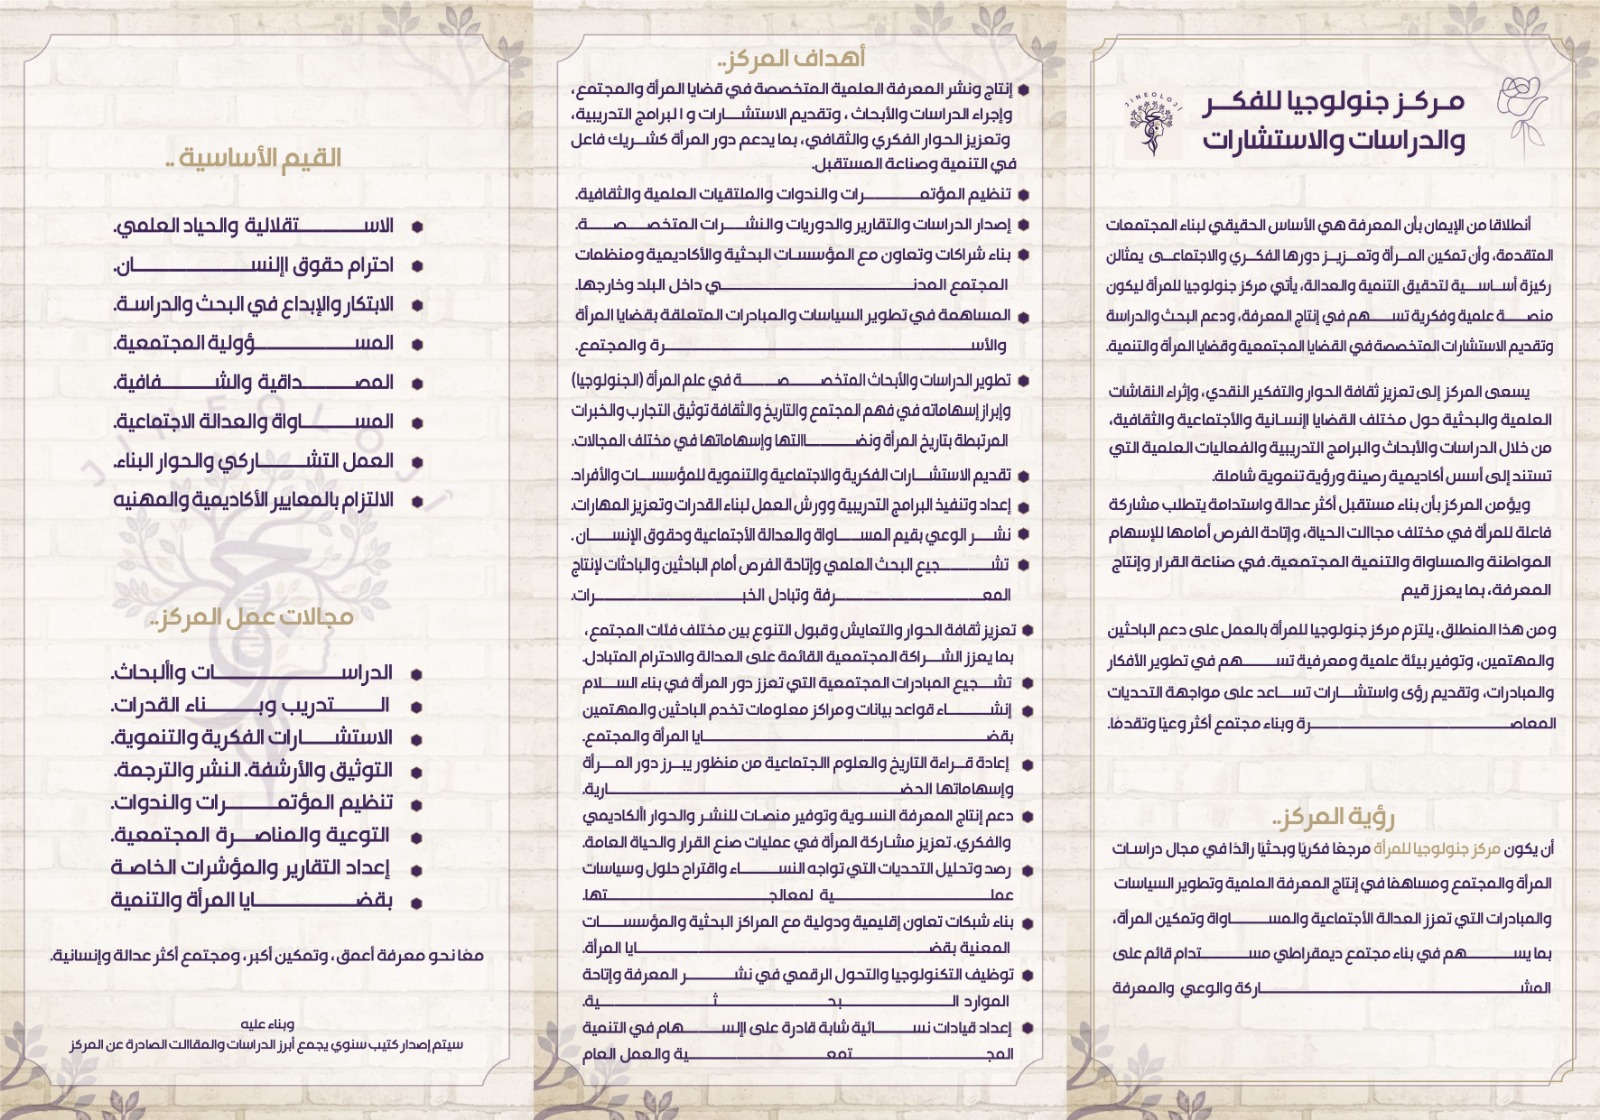 مركز جنولوجيا للفكر
والدراسات والاستشارات
JINEOLOJÎ
أنطلاقا من الإيمان بأن المعرفة هي الأساس الحقيقي لبناء المجتمعات
المتقدمة، وأن تمكين المرأة وتعزيز دورها الفكري والاجتماعي يمثالن
ركيزة أساسية لتحقيق التنمية والعدالة، يأتي مركز جنولوجيا للمرأة ليكون
منصة علمية وفكرية تسهم في إنتاج المعرفة، ودعم البحث والدراسة
وتقديم الاستشارات المتخصصة في القضايا المجتمعية وقضايا المرأة والتنمية.
يسعى المركز إلى تعزيز ثقافة الحوار والتفكير النقدي، وإثراء النقاشات
العلمية والبحثية حول مختلف القضايا اإلنسانية والأجتماعية والثقافية،
من خلال الدراسات والأبحاث والبرامج التدريبية والفعاليات العلمية التي
تستند إلى أسس أكاديمية رصينة ورؤية تنموية شاملة.
ويؤمن المركز بأن بناء مستقبل أكثر عدالة واستدامة يتطلب مشاركة
فاعلة للمرأة في مختلف مجاالت الحياة، وإتاحة الفرص أمامها للإسهام
المواطنة والمساواة والتنمية المجتمعية. في صناعة القرار وإنتاج
المعرفة، بما يعزز قيم
ومن هذا المنطلق، يلتزم مركز جنولوجيا للمرأة بالعمل على دعم الباحثين
والمهتمين، وتوفير بيئة علمية ومعرفية تسهم في تطوير الأفكار
والمبادرات، وتقديم رؤى واستشارات تساعد على مواجهة التحديات
المعاصرة وبناء مجتمع أكثر وعيًا وتقدمًا.
رؤية المركز..
أن يكون مركز جنولوجيا للمرأة مرجعًا فكريًا وبحثيًا رائدًا في مجال دراسات
المرأة والمجتمع ومساهمًا في إنتاج المعرفة العلمية وتطوير السياسات
والمبادرات التي تعزز العدالة الأجتماعية والمساواة وتمكين المرأة،
بما يسهم في بناء مجتمع ديمقراطي مستدام قائم على
المشاركة والوعي والمعرفة
أهداف المركز..
إنتاج ونشر المعرفة العلمية المتخصصة في قضايا المرأة والمجتمع،
وإجراء الدراسات والأبحاث ، وتقديم الاستشارات و ا لبرامج التدريبية،
وتعزيز الحوار الفكري والثقافي، بما يدعم دور المرأة كشريك فاعل
في التنمية وصناعة المستقبل.
تنظيم المؤتمرات والندوات والملتقيات العلمية والثقافية.
إصدار الدراسات والتقارير والدوريات والنشرات المتخصصة.
بناء شراكات وتعاون مع المؤسسات البحثية والأكاديمية ومنظمات
المجتمع المدني داخل البلد وخارجها.
المساهمة في تطوير السياسات والمبادرات المتعلقة بقضايا المرأة
والأسرة والمجتمع.
تطوير الدراسات والأبحاث المتخصصة في علم المرأة (الجنولوجيا)
وإبراز إسهاماته في فهم المجتمع والتاريخ والثقافة توثيق التجارب والخبرات
المرتبطة بتاريخ المرأة ونضاالتها وإسهاماتها في مختلف المجالات.
تقديم الاستشارات الفكرية والاجتماعية والتنموية للمؤسسات والأفراد.
إعداد وتنفيذ البرامج التدريبية وورش العمل لبناء القدرات وتعزيز المهارات.
نشر الوعي بقيم المساواة والعدالة الأجتماعية وحقوق الإنسان .
تشجيع البحث العلمي وإتاحة الفرص أمام الباحثين والباحثات لإنتاج
المعرفة وتبادل الخبرات.
تعزيز ثقافة الحوار والتعايش وقبول التنوع بين مختلف فئات المجتمع،
بما يعزز الشراكة المجتمعية القائمة على العدالة والاحترام المتبادل.
تشجيع المبادرات المجتمعية التي تعزز دور المرأة في بناء السلام
إنشاء قواعد بيانات ومراكز معلومات تخدم الباحثين والمهتمين
بقضايا المرأة والمجتمع.
إعادة قراءة التاريخ والعلوم االجتماعية من منظور يبرز دور المرأة
وإسهاماتها الحضارية.
دعم إنتاج المعرفة النسوية وتوفير منصات للنشر والحوار األكاديمي
والفكري. تعزيز مشاركة المرأة في عمليات صنع القرار والحياة العامة.
رصد وتحليل التحديات التي تواجه النساء واقتراح حلول وسياسات
عملية لمعالجتها.
بناء شبكات تعاون إقليمية ودولية مع المراكز البحثية والمؤسسات
المعنية بقضايا المرأة.
توظيف التكنولوجيا والتحول الرقمي في نشر المعرفة وإتاحة
الموارد البحثية.
إعداد قيادات نسائية شابة قادرة على اإلسهام في التنمية
المجتمعية والعمل العام
القيم الأساسية ..
الاستقلالية والحياد العلمي.
احترام حقوق اإلنسان.
الابتكار والإبداع في البحث والدراسة.
المسؤولية المجتمعية.
المصداقية والشفافية.
المساواة والعدالة الاجتماعية.
العمل التشاركي والحوار البناء.
الالتزام بالمعايير الأكاديمية والمهنيه
JINEOLOJÎ
مجالات عمل المركز..
الدراسات واألبحاث.
التدريب وبناء القدرات.
الاستشارات الفكرية والتنموية.
التوثيق والأرشفة. النشر والترجمة.
تنظيم المؤتمرات والندوات.
التوعية والمناصرة المجتمعية.
إعداد التقارير والمؤشرات الخاصة
بقضايا المرأة والتنمية
معًا نحو معرفة أعمق، وتمكين أكبر، ومجتمع أكثر عدالة وإنسانية.
وبناء عليه
سيتم إصدار كتيب سنوي يجمع أبرز الدراسات والمقاالت الصادرة عن المركز